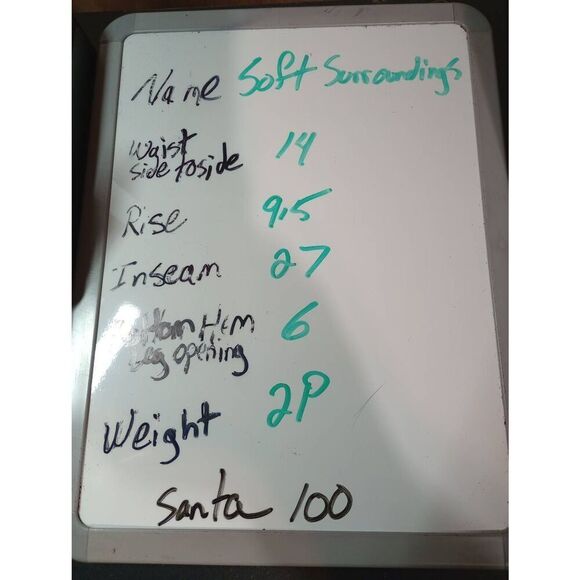 Name Soft Surroundings
Waist
side to side 14
Rise 9.5
Inseam 27
Bottom Hem
Leg opening 6
Weight 2P
Santa 100